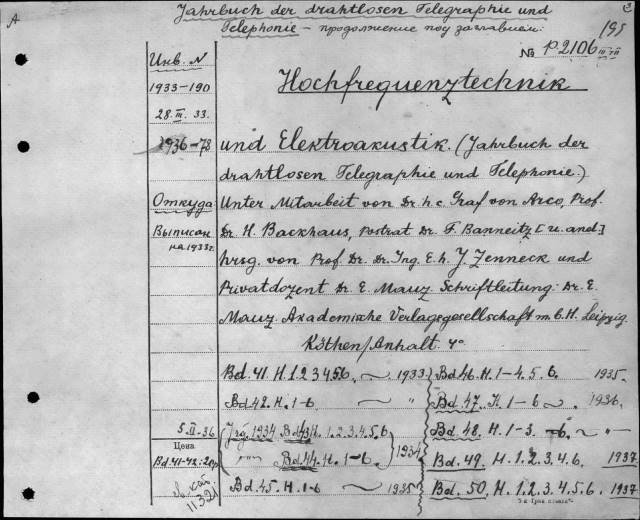 A
Jahrbuch der drahtlosen Telegraphie und
Telephonie – продолжение под заглавием:
195
№ P-2106 III-VII
Инв. N
1933-190
28.III.33.
1936-78
Откуда
Выписан
на 1933г.
5.II-36
Цена
Bd. 41-42:
Hochfrequenztechnik
und Elektroakustik. (Jahrbuch der
drahtlosen Telegraphie und Telephonie.)
Unter Mitarbeit von Dr. h.c. Graf von Arco, Prof.
Dr. H. Backhaus, Postrat Dr. F. Banneitz [u. and.]
hrsg. von Prof. Dr. Dr. Ing. E. h. J. Zenneck und
Privatdozent Dr. E. Mauz. Schriftleitung: Dr. E.
Mauz. Akademische Verlagsgesellschaft m.b.H. Leipzig.
Köthen/Anhalt. 4°
Bd. 41. H. 1.2.3.4.5.6. ~ 1933
Bd. 42. H. 1-6 ~ "
Jrg. 1934 Bd. 43 H. 1.2.3.4.5.6
" " Bd. 44. H. 1-6. 1934
Bd. 45. H. 1-6 ~ 1935
Bd. 46. H. 1-4.5.6. 1935.
Bd. 47. H. 1-6 ~ 1936.
Bd. 48. H. 1-3. -6. ~ " –
Bd. 49. H. 1.2.3.4.6. 1937
Bd. 50. H. 1.2.3.4.5.6. 1937